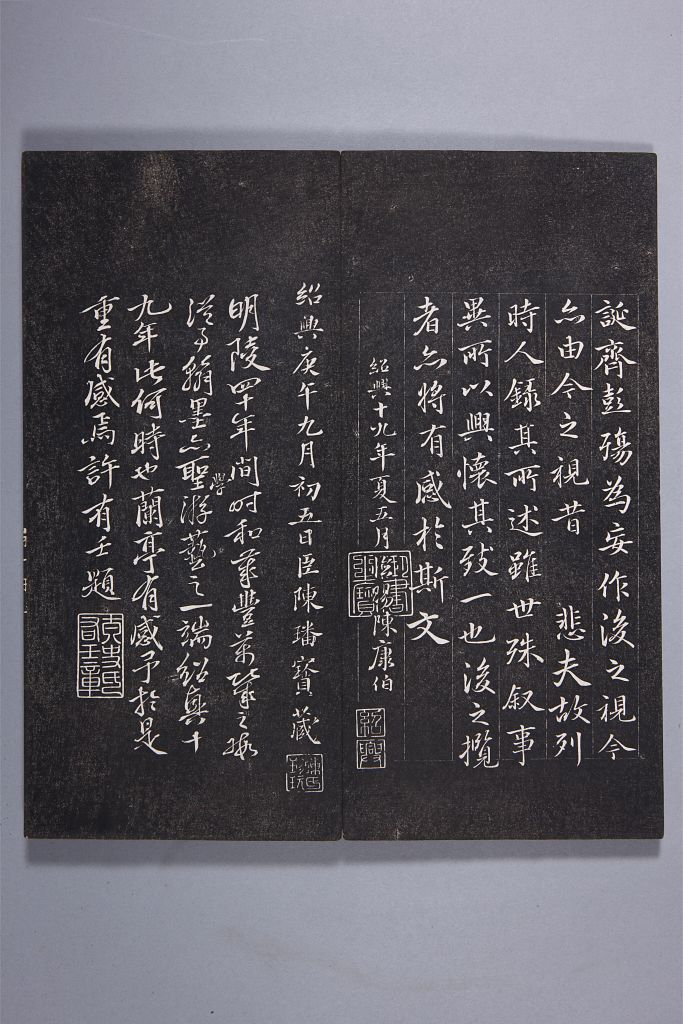 誕齊彭殤為妄作後之視今
亦由今之視昔 悲夫故列
時人錄其所述雖世殊叙事
異所以興懷其致一也後之攬
者亦將有感於斯文
紹興十九年夏五月賜陳康伯
紹興
紹興庚午九月初五日臣陳璠寶藏
陳氏珍玩
明陵四十年間時和歲豐萬幾之暇
從事翰墨亦聖學游藝之一端紹興十
九年此何時也蘭亭有感予於是
重有感焉許有壬題